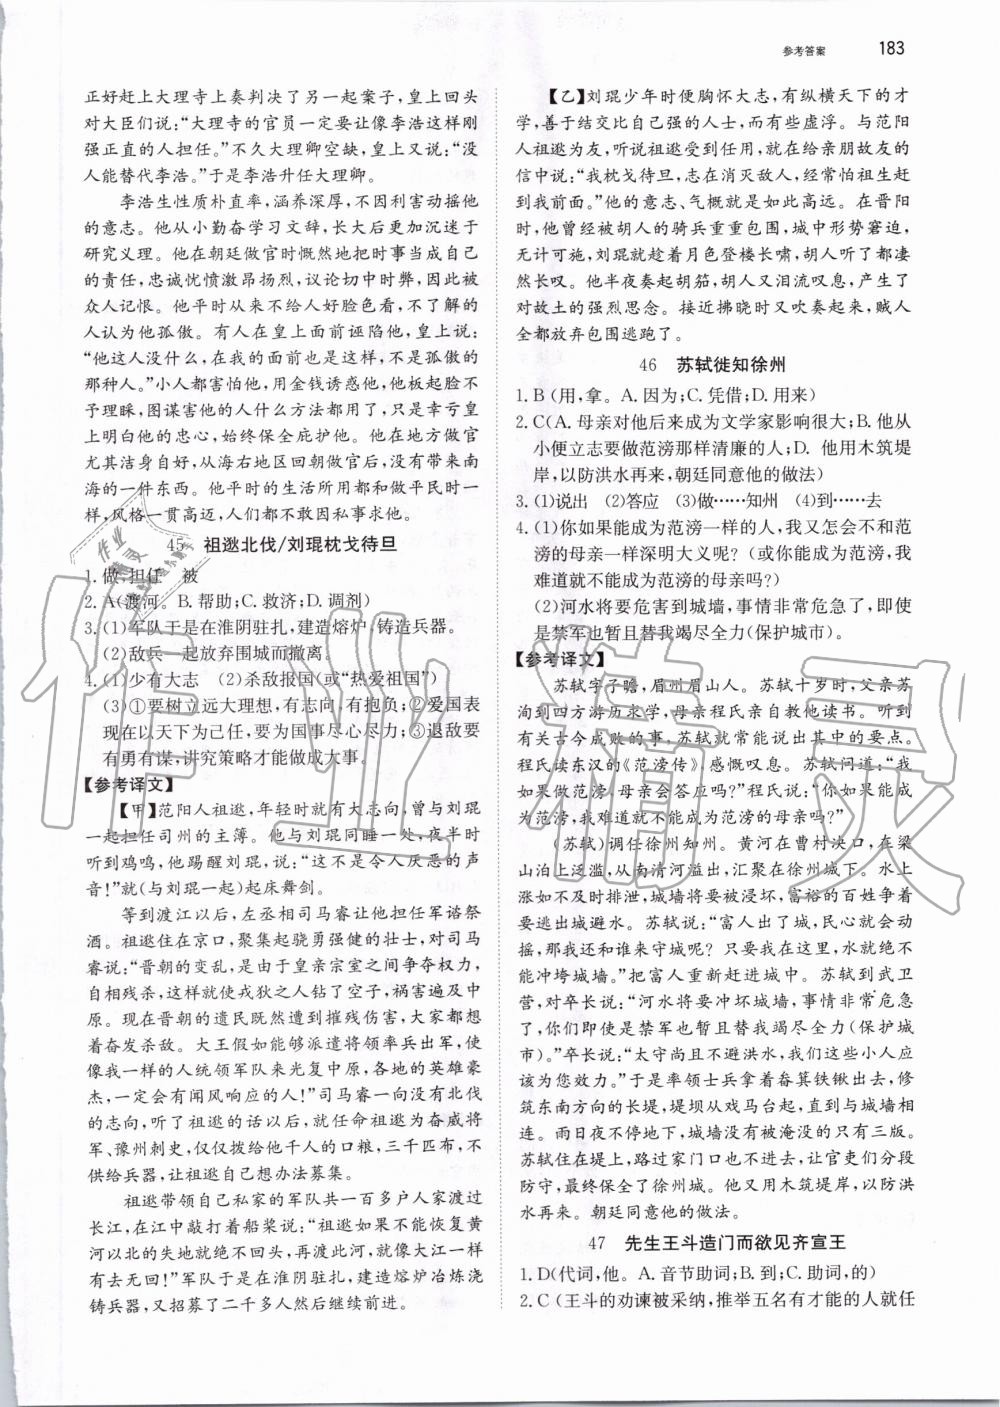 参考答案 183
正好赶上大理寺上奏判决了另一起案子，皇上回头
对大臣们说：“大理寺的官员一定要让像李浩这样刚
强正直的人担任。”不久大理卿空缺，皇上又说：“没
人能替代李浩。”于是李浩升任大理卿。
李浩生性质朴直率，涵养深厚，不因利害动摇他
的意志。他从小勤奋学习文辞，长大后更加沉迷于
研究义理。他在朝廷做官时慨然把时事当成自己的
责任，忠诚忧愤激昂扬烈，议论切中时弊，因此被
众人记恨。他平时从来不给人好脸色看，不了解的
人认为他孤傲。有人在皇上面前诬陷他，皇上说：
“他这人没什么，在我的面前也是这样，不是孤傲的
那种人。”小人都害怕他，用金钱诱惑他，他板起脸不
予理睬，图谋害他的人什么方法都用了，只是幸亏皇
上明白他的忠心，始终保全庇护他。他在地方做官
尤其洁身自好，从海右地区回朝做官后，没有带来南
海的一件东西。他平时的生活所用都和做平民时一
样，风格一贯高迈，人们都不敢因私事求他。
45 祖逖北伐/刘琨枕戈待旦
1. 做，担任 被
2. A(渡河。B. 帮助；C. 救济；D. 调剂)
3. (1)军队于是在淮阴驻扎，建造熔炉，铸造兵器。
(2)敌兵一起放弃围城而撤离。
4. (1)少有大志 (2)杀敌报国(或“热爱祖国”)
(3)①要树立远大理想，有志向，有抱负；②爱国表
现在以天下为己任，要为国事尽心尽力；③退敌要
有勇有谋，讲究策略才能做成大事。
【参考译文】
【甲】范阳人祖逖，年轻时就有大志向，曾与刘琨
一起担任司州的主簿。他与刘琨同睡一处，夜半时
听到鸡鸣，他踢醒刘琨，说：“这不是令人厌恶的声
音！”就(与刘琨一起)起床舞剑。
等到渡江以后，左丞相司马睿让他担任军谘祭
酒。祖逖住在京口，聚集起骁勇强健的壮士，对司马
睿说：“晋朝的变乱，是由于皇亲宗室之间争夺权力，
自相残杀，这样就使戎狄之人钻了空子，祸害遍及中
原。现在晋朝的遗民既然遭到摧残伤害，大家都想
着奋发杀敌。大王假如能够派遣将领率兵出军，使
像我一样的人统领军队来光复中原，各地的英雄豪
杰，一定会有闻风响应的人！”司马睿一向没有北伐
的志向，听了祖逖的话以后，就任命祖逖为奋威将
军、豫州刺史，仅仅拨给他千人的口粮，三千匹布，不
供给兵器，让祖逖自己想办法募集。
祖逖带领自己私家的军队共一百多户人家渡过
长江，在江中敲打着船桨说：“祖逖如果不能恢复黄
河以北的失地就绝不回头，再渡此河，就像大江一样
有去无回！”军队于是在淮阴驻扎，建造熔炉冶炼浇
铸兵器，又招募了二千多人然后继续前进。
【乙】刘琨少年时便胸怀大志，有纵横天下的才
学，善于结交比自己强的人士，而有些虚浮。与范阳
人祖逖为友，听说祖逖受到任用，就在给亲朋故友的
信中说：“我枕戈待旦，志在消灭敌人，经常怕祖生赶
到我前面。”他的意志、气概就是如此高远。在晋阳
时，他曾经被胡人的骑兵重重包围，城中形势窘迫，
无计可施，刘琨就趁着月色登楼长啸，胡人听了都凄
然长叹。他半夜奏起胡笳，胡人又泪流叹息，产生了
对故土的强烈思念。接近拂晓时又吹奏起来，胡人
全都放弃包围逃跑了。
46 苏轼徙知徐州
1. B (用，拿。A. 因为；C. 凭借；D. 用来)
2. C(A. 母亲对他后来成为文学家影响很大；B. 他从
小便立志要做范滂那样清廉的人；D. 他用木筑堤
岸，以防洪水再来，朝廷同意他的做法)
3. (1)说出 (2)答应 (3)做……知州 (4)到……去
4. (1)你如果能成为范滂一样的人，我又怎会不和范
滂的母亲一样深明大义呢？(或你能成为范滂，我
难道就不能成为范滂的母亲吗？)
(2)河水将要危害到城墙，事情非常危急了，即使
是禁军也暂且替我竭尽全力(保护城市)。
【参考译文】
苏轼字子瞻，眉州眉山人。苏轼十岁时，父亲苏
洵到四方游历求学，母亲程氏亲自教他读书。听到
有关古今成败的事，苏轼就常能说出其中的要点。
程氏读东汉《范滂传》，感慨叹息。苏轼问道：“我
如果做范滂，母亲会答应吗？”程氏说：“你能成为范
滂，我难道就不能成为范滂的母亲吗？”
(苏轼)调任徐州知州。黄河在曹村决口，在梁
山泊上泛滥，从南清河溢出，汇聚在徐州城下。水上
涨如不及时排泄，城墙将要被浸坏，富裕的百姓争着
要逃出城避水。苏轼说：“富人出了城，民心就会动
摇，那我还和谁来守城呢？只要我在这里，水就绝不
能冲垮城墙。”把富人重新赶进城中。苏轼到武卫
营，对卒长说：“河水将要冲坏城墙，事情非常危急
了，你们即使是禁军也暂且替我竭尽全力(保护城
市)。”卒长说：“太守尚且不避洪水，我们这些小人应
该为您效力。”于是率领士兵拿着畚箕铁锹出去，修
筑东南方向的长堤，堤坝从戏马台起，直到与城墙相
连。雨日夜不停地下，城墙没有被淹没的只有三版。
苏轼住在堤上，路过家门口也不进去，让官吏们分段
防守，最终保全了徐州城。他又用木筑堤岸，以防洪
水再来。朝廷同意他的做法。
47 先生王斗造门而欲见齐宣王
1. D(代词，他。A. 音节助词；B. 到；C. 助词，的)
2. C (王斗的劝谏被采纳，推举五名有才能的人就任
作业精灵